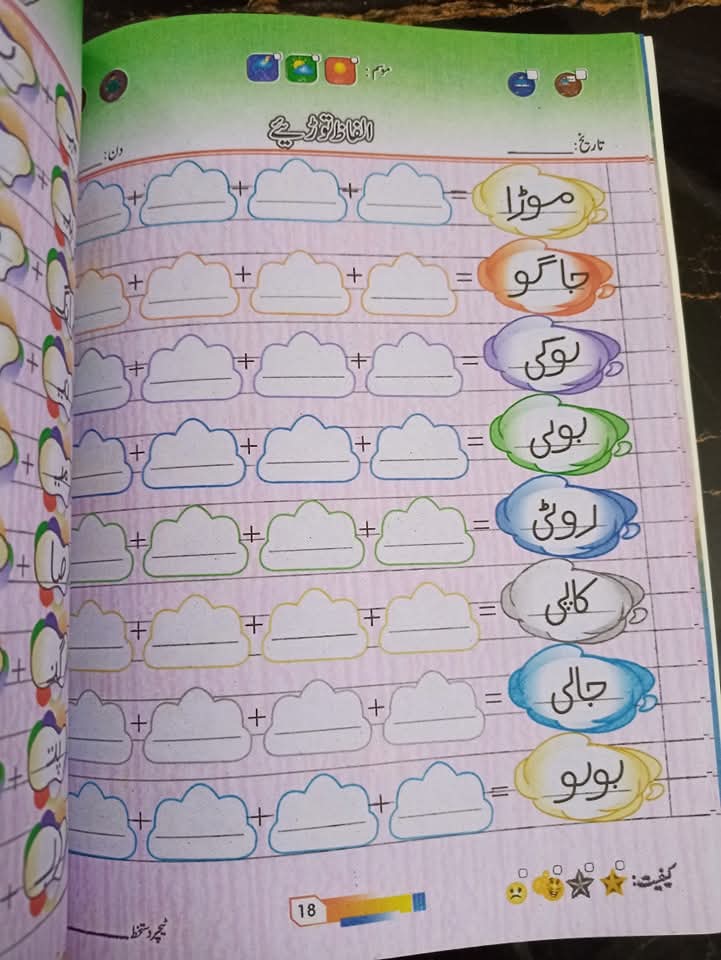 موسم:
الفاظ توڑیئے
تاریخ: ________ دن: ____
موڑا = ____ + ____ + ____ + ____
جاگو = ____ + ____ + ____ + ____
لوکی = ____ + ____ + ____ + ____
بولی = ____ + ____ + ____ + ____
روٹی = ____ + ____ + ____ + ____
کاپی = ____ + ____ + ____ + ____
جالی = ____ + ____ + ____ + ____
بولو = ____ + ____ + ____ + ____
کیفیت:
18
ٹیچر دستخط ________